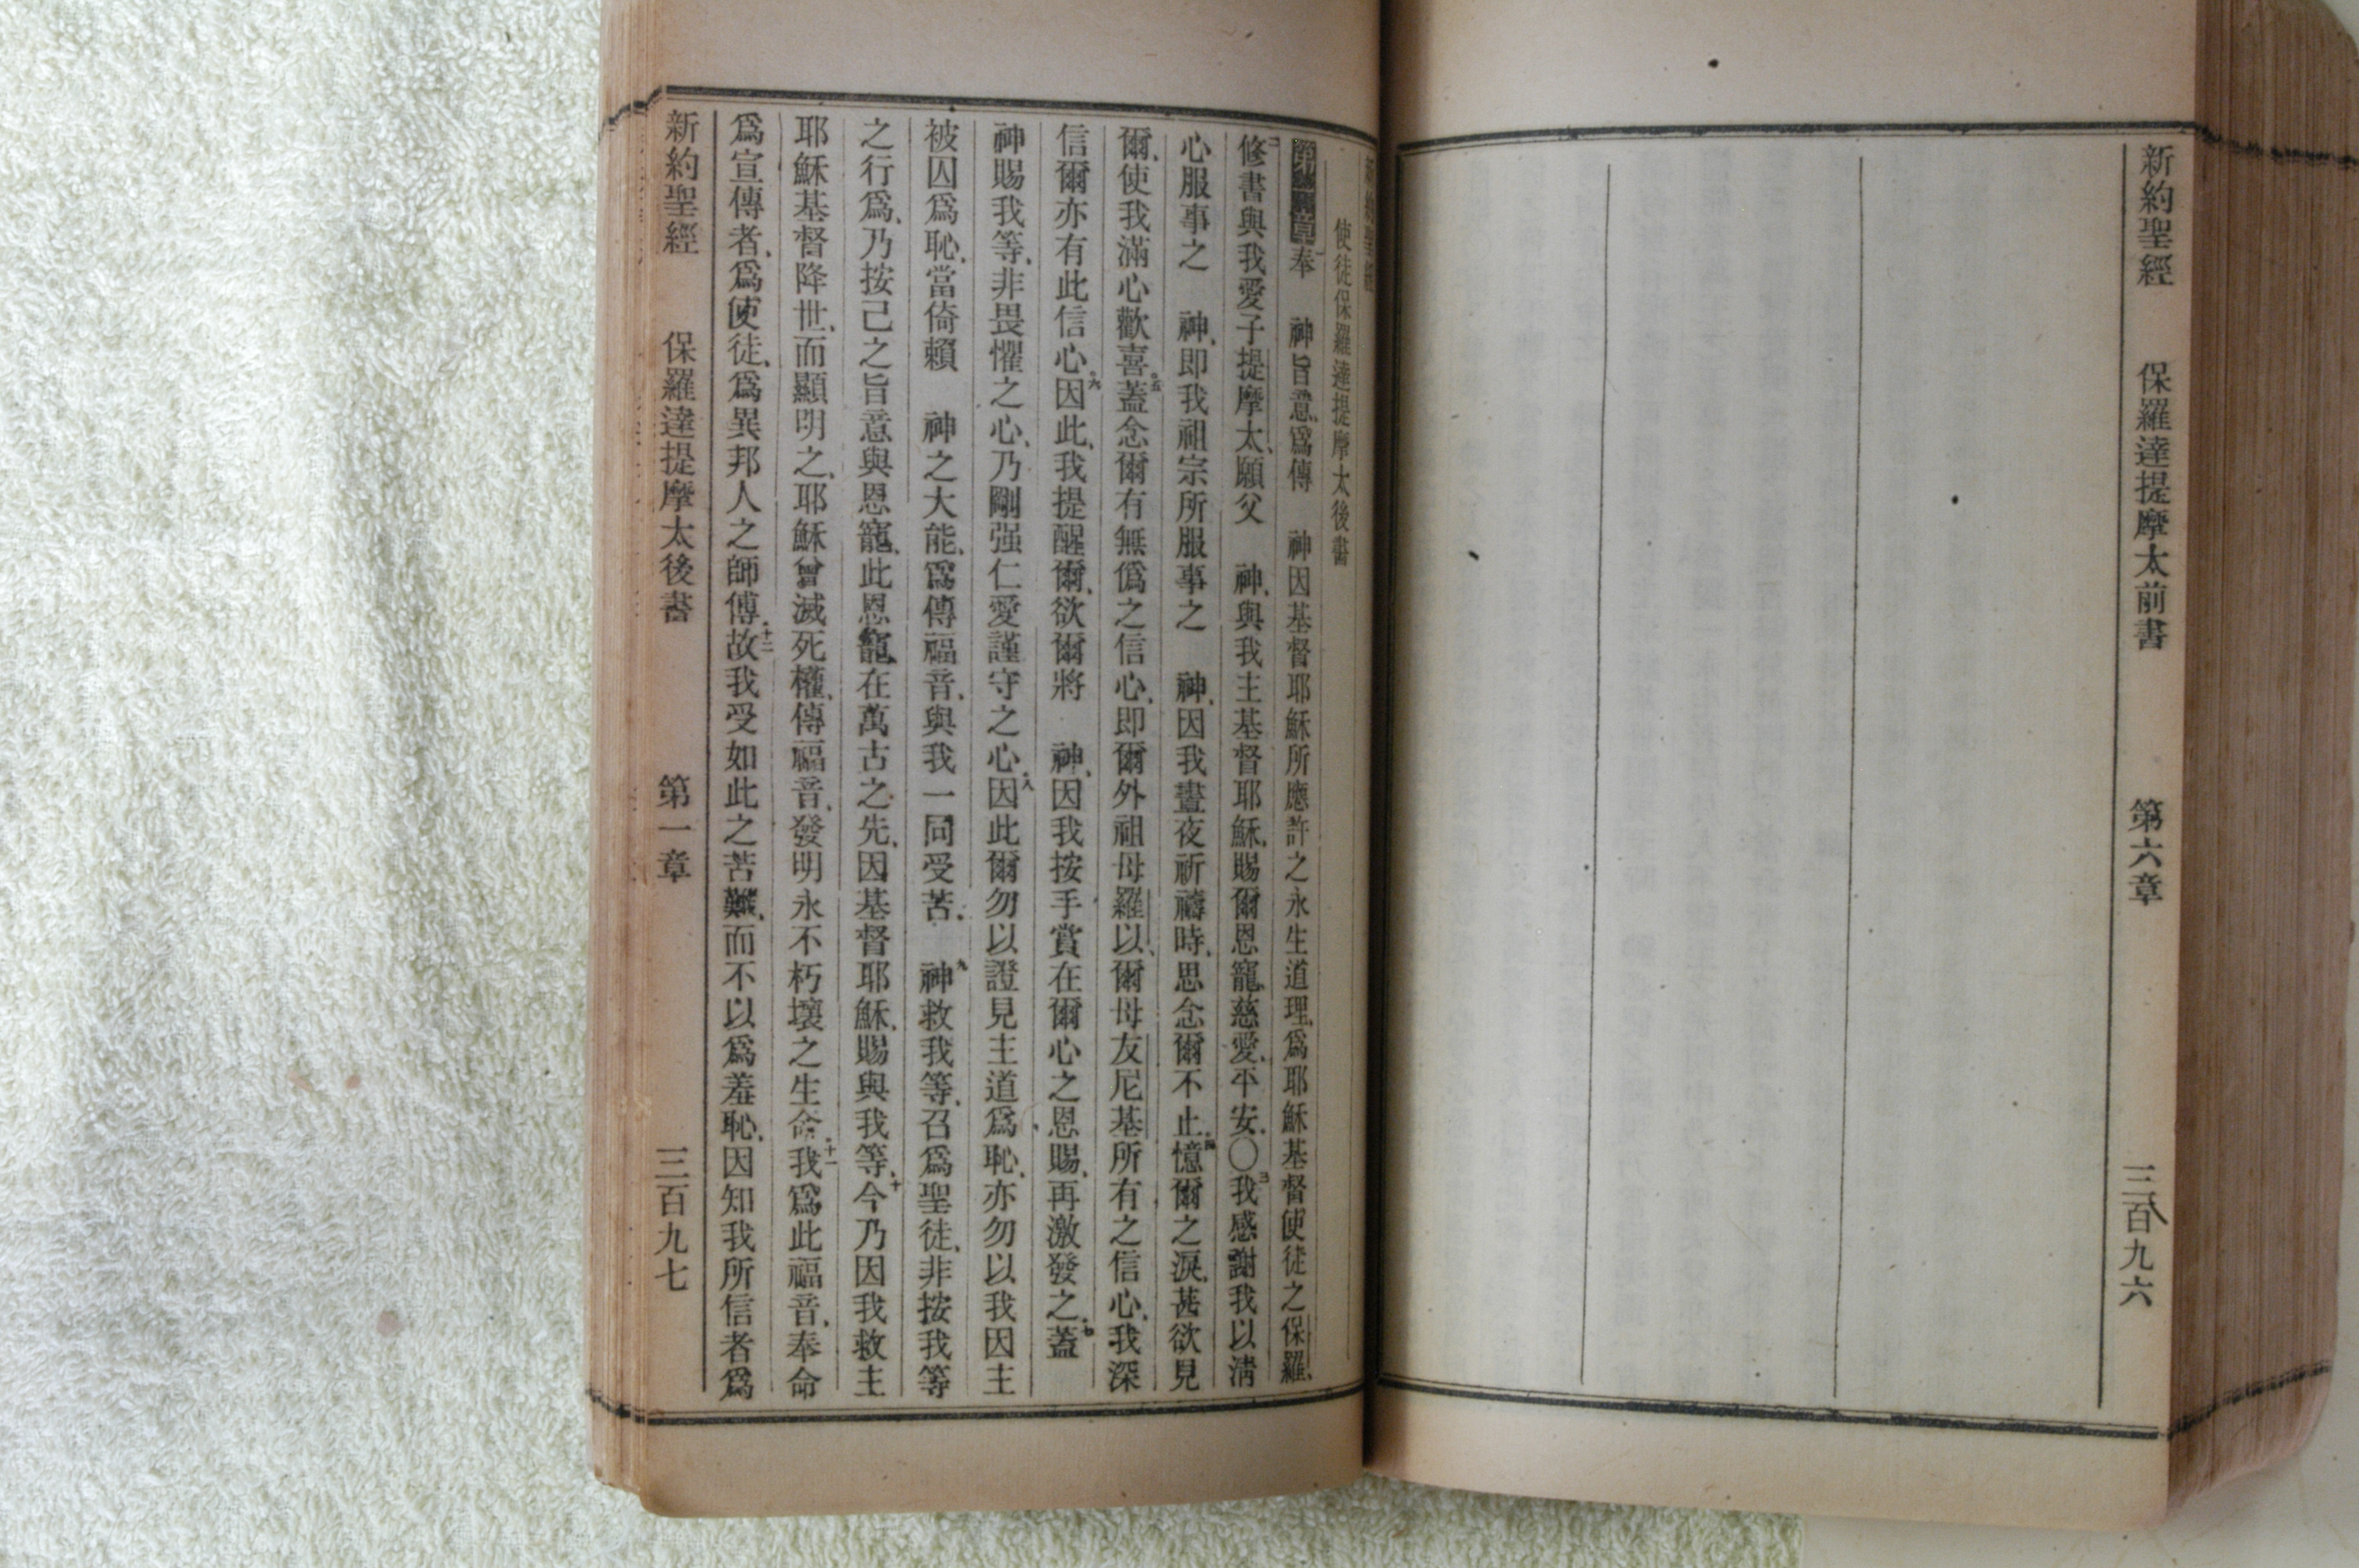 新約聖經 保羅達提摩太前書 第六章 三百九六
新約聖經
使徒保羅達提摩太後書
第一章奉 神旨意、爲傳 神因基督耶穌所應許之永生道理、爲耶穌基督使徒之保羅、
二修書與我愛子提摩太、願父 神、與我主基督耶穌、賜爾恩寵、慈愛、平安。〇三我感謝我以淸
心服事之 神、即我祖宗所服事之 神、因我晝夜祈禱時、思念爾不止、四憶爾之淚、甚欲見
爾、使我滿心歡喜。五蓋念爾有無僞之信心、即爾外祖母羅以、爾母友尼基所有之信心、我深
信爾亦有此信心。六因此、我提醒爾、欲爾將 神、因我按手賞在爾心之恩賜、再激發之。七蓋
神賜我等、非畏懼之心、乃剛强仁愛謹守之心。八因此爾勿以證見主道爲恥、亦勿以我因主
被囚爲恥、當倚賴 神之大能、爲傳福音、與我一同受苦。九 神救我等、召爲聖徒、非按我等
之行爲、乃按己之旨意與恩寵、此恩寵、在萬古之先、因基督耶穌、賜與我等、十今乃因我救主
耶穌基督降世、而顯明之、耶穌曾滅死權、傳福音、發明永不朽壞之生命。十一我爲此福音、奉命
爲宣傳者、爲使徒、爲異邦人之師傅。十二故我受如此之苦難、而不以爲羞恥、因知我所信者爲
新約聖經 保羅達提摩太後書 第一章 三百九七